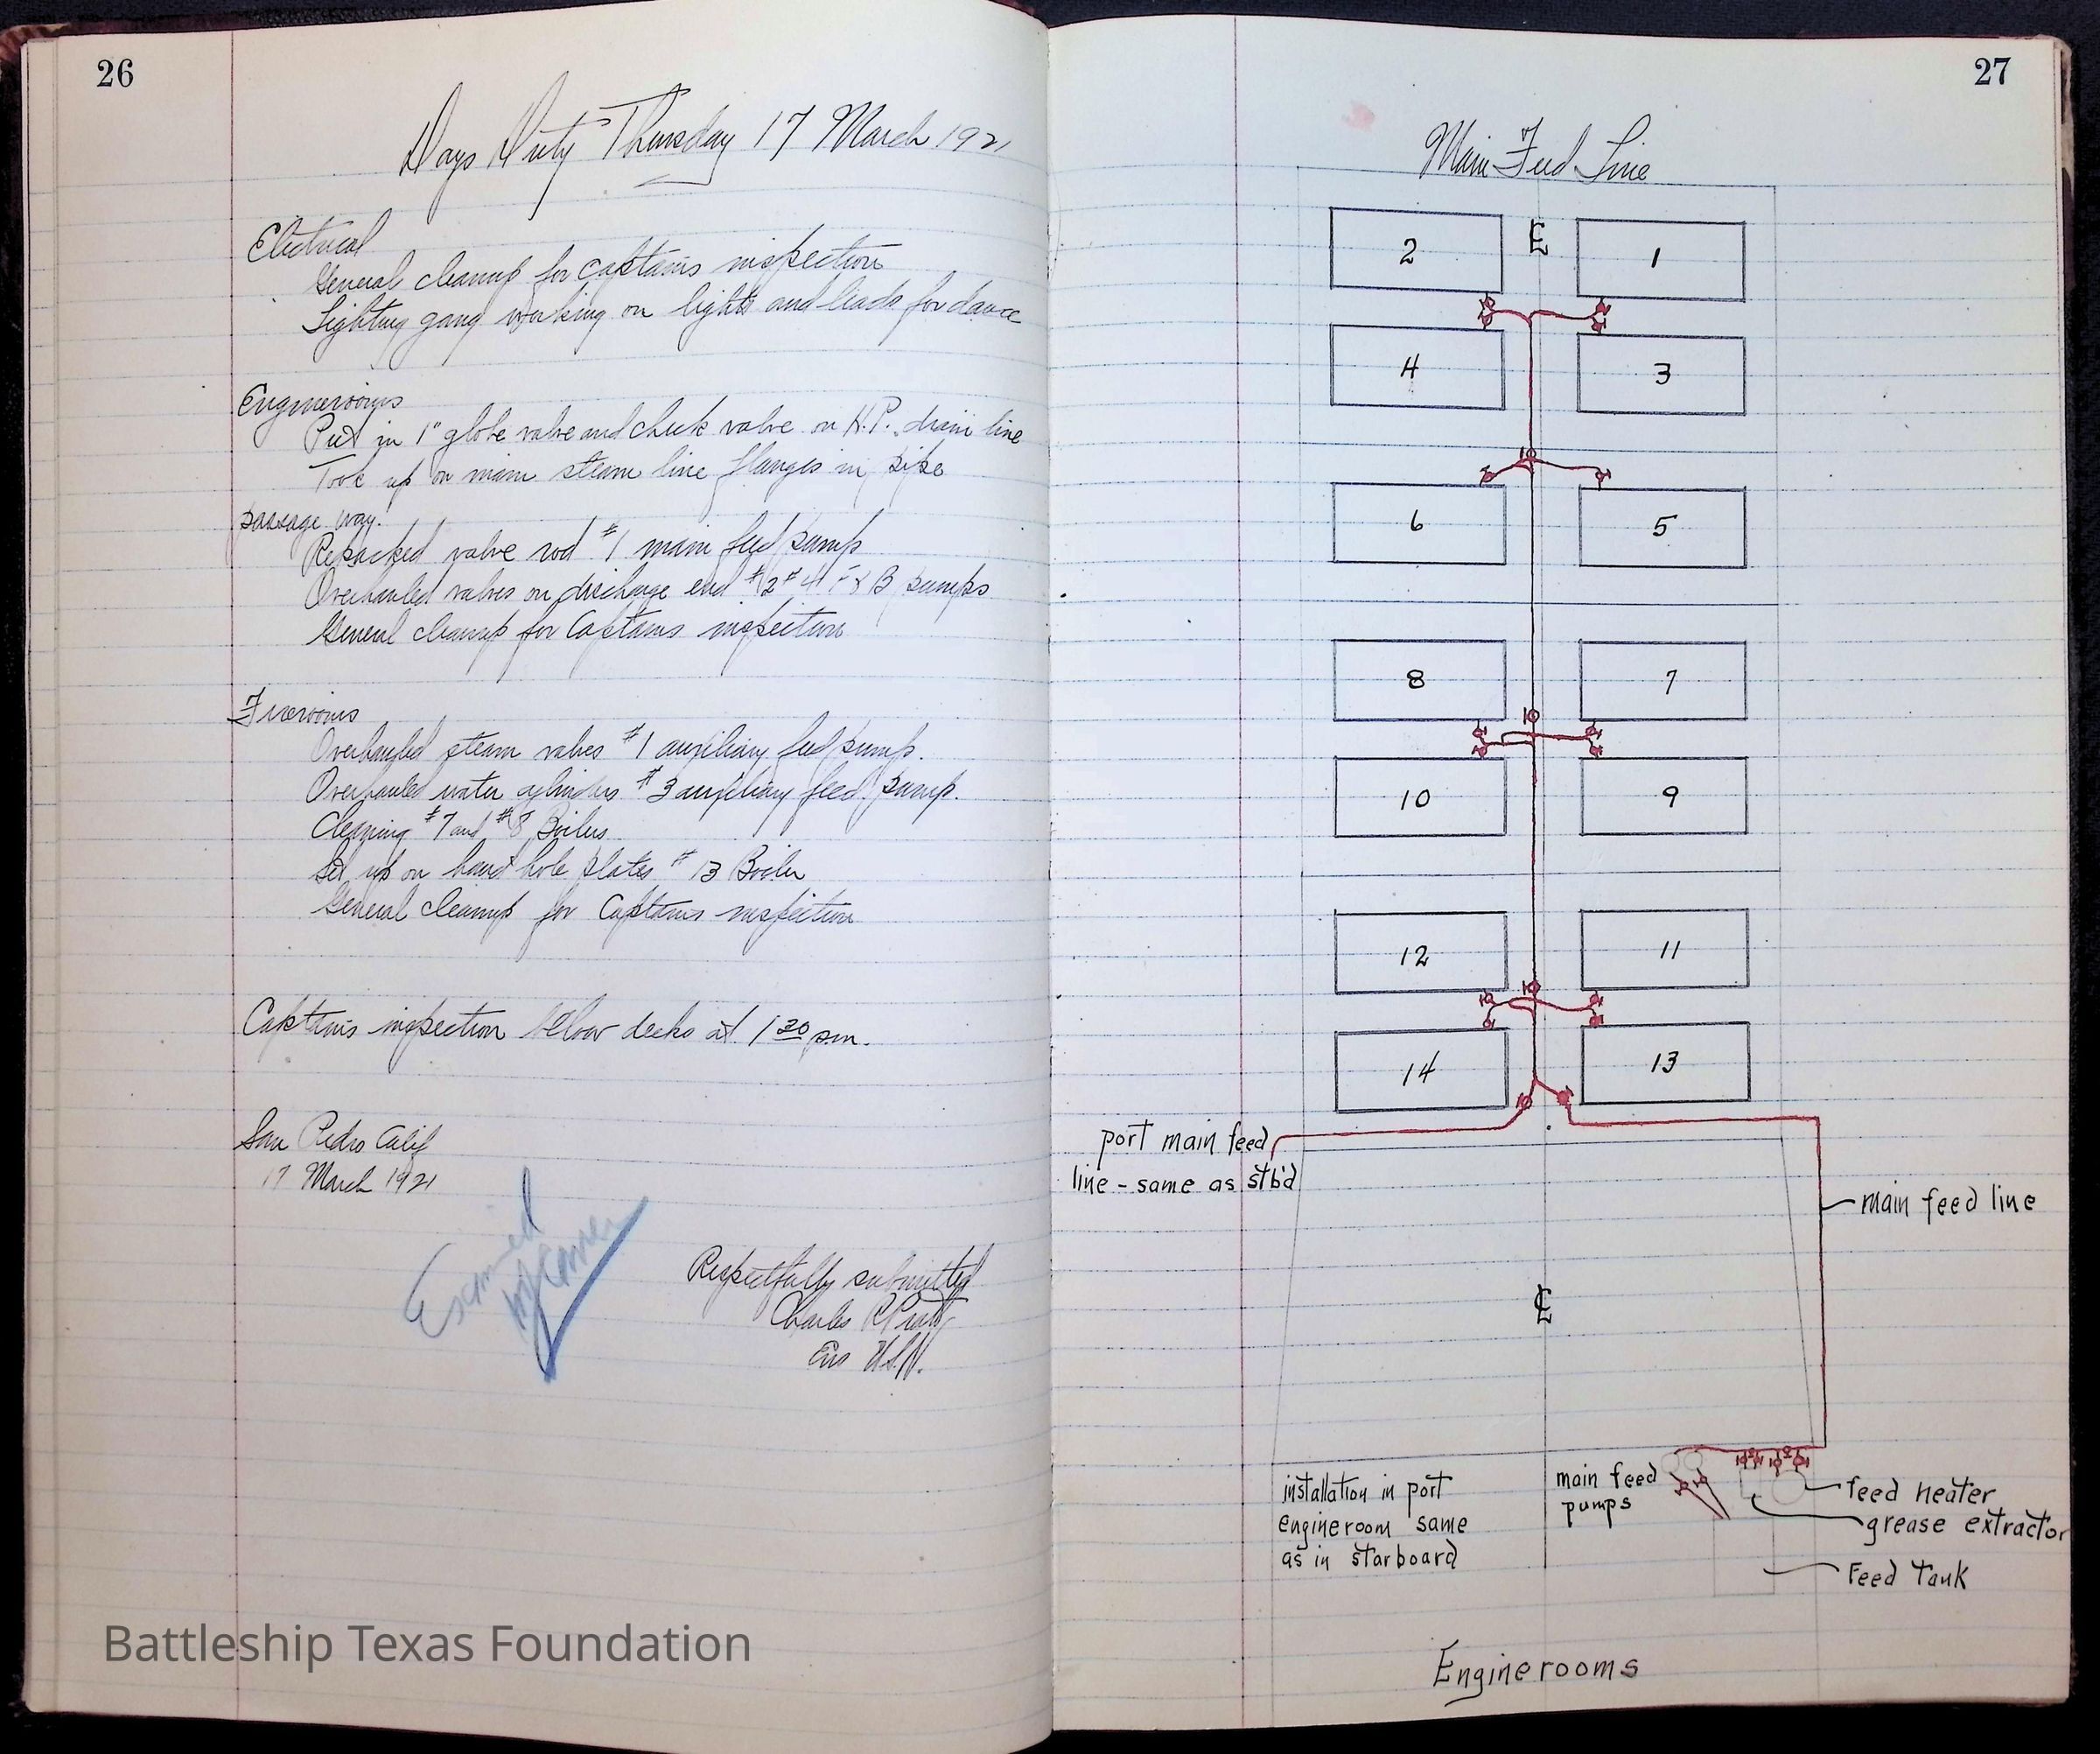 26
Days Duty Thursday 17 March 1921
Electrical
General cleanup for captains inspection
Lighting gang working on lights and leads for dance
Enginerooms
Put in 1" globe valve and check valve on H.P. drain line
Took up on main steam line flanges in pipe
passage way.
Repacked valve rod #1 main feed pump
Overhauled valves on discharge end #2 #4 F & B pumps
General cleanup for Captains inspection
Firerooms
Overhauled steam valves #1 auxiliary feed pump.
Overhauled water cylinders #3 auxiliary feed pump.
Cleaning #7 and #8 Boilers
Set up on hand hole plates #13 Boiler
General cleanup for Captains inspection
Captains inspection below decks at 1 30 p.m.
San Pedro Calif
17 March 1921
Examined
Respectfully submitted
Charles R
Ens U.S.N.
Battleship Texas Foundation
27
Main Feed Line
2 ℄ 1
4 3
6 5
8 7
10 9
12 11
14 13
port main feed
line - same as stb'd
main feed line
℄
installation in port
engineroom same
as in starboard
main feed
pumps
feed heater
grease extractor
Feed Tank
Enginerooms